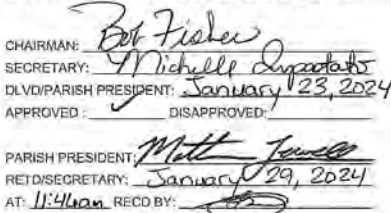 CHAIRMAN: Bob Fisher
SECRETARY: Michelle Impastato
DLVD/PARISH PRESIDENT: January 23, 2024
APPROVED: ✓ DISAPPROVED:
PARISH PRESIDENT: Matthew Jewell
RETD/SECRETARY: January 29, 2024
AT: 11:46am RECD BY: